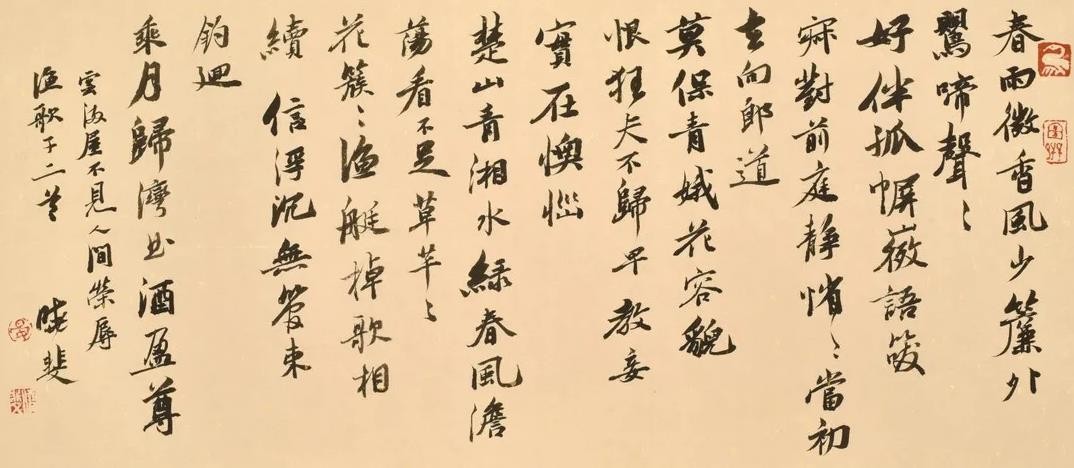 春雨微香風少簾外
鶯啼聲〻
好伴孤幈微語笑
寂對前庭靜悄〻當初
去向郎道
莫保青娥花容貌
恨狂夫不歸早教妾
實在懊惱
楚山青湘水綠春風澹
蕩看不足草芊〻
花簇〻漁艇棹歌相
續 信浮沉無管束
釣迴
乘月歸灣曲酒盈尊
雲滿屋不見人間榮辱
漁歌子二首 曉斐